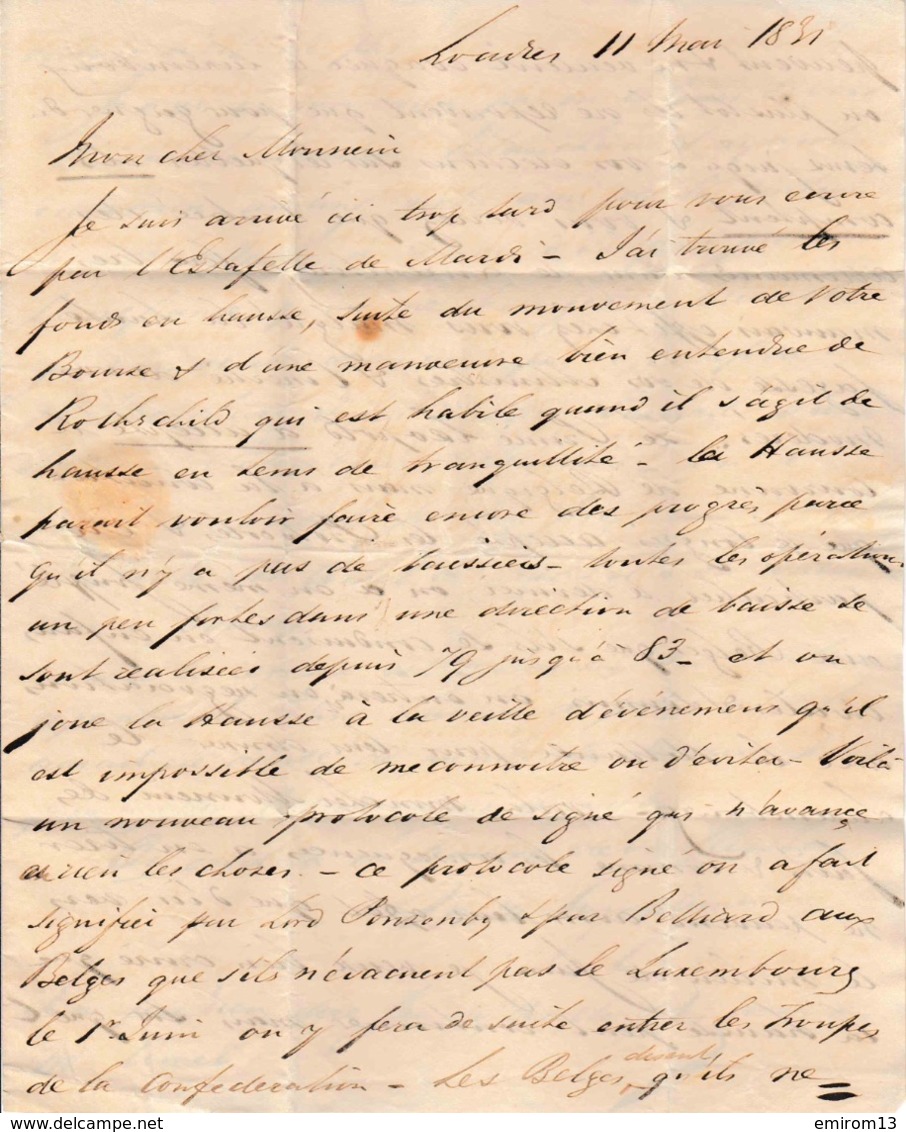 Londres 11 Mai 1831
Mon cher Monsieur
Je suis arrivé ici trop tard pour vous écrire
par l'Estafette de Mardi - J'ai trouvé les
fonds en hausse, suite du mouvement de votre
Bourse & d'une manoeuvre bien entendue de
Rothschild qui est habile quand il s'agit de
hausse en tems de tranquillité - la Hausse
parait vouloir faire encore des progrès parce
qu'il n'y a pas de baissiers - toutes les opérations
un peu fortes dans une direction de baisse se
sont realisées depuis 79 jusqu'à 83 - et on
joue la Hausse à la veille d'événemens qu'il
est impossible de meconnoitre ou d'éviter - Voilà
un nouveau protocole de signé qui n'avance
en rien les choses. - Ce protocole signé on a fait
signifier par Lord Ponsonby & par Belliard aux
Belges que s'ils n'évacuent pas le Luxembourg
le 1r Juin on y fera de suite entrer les troupes
de la Confederation - Les Belges disent qu'ils ne
emirom13